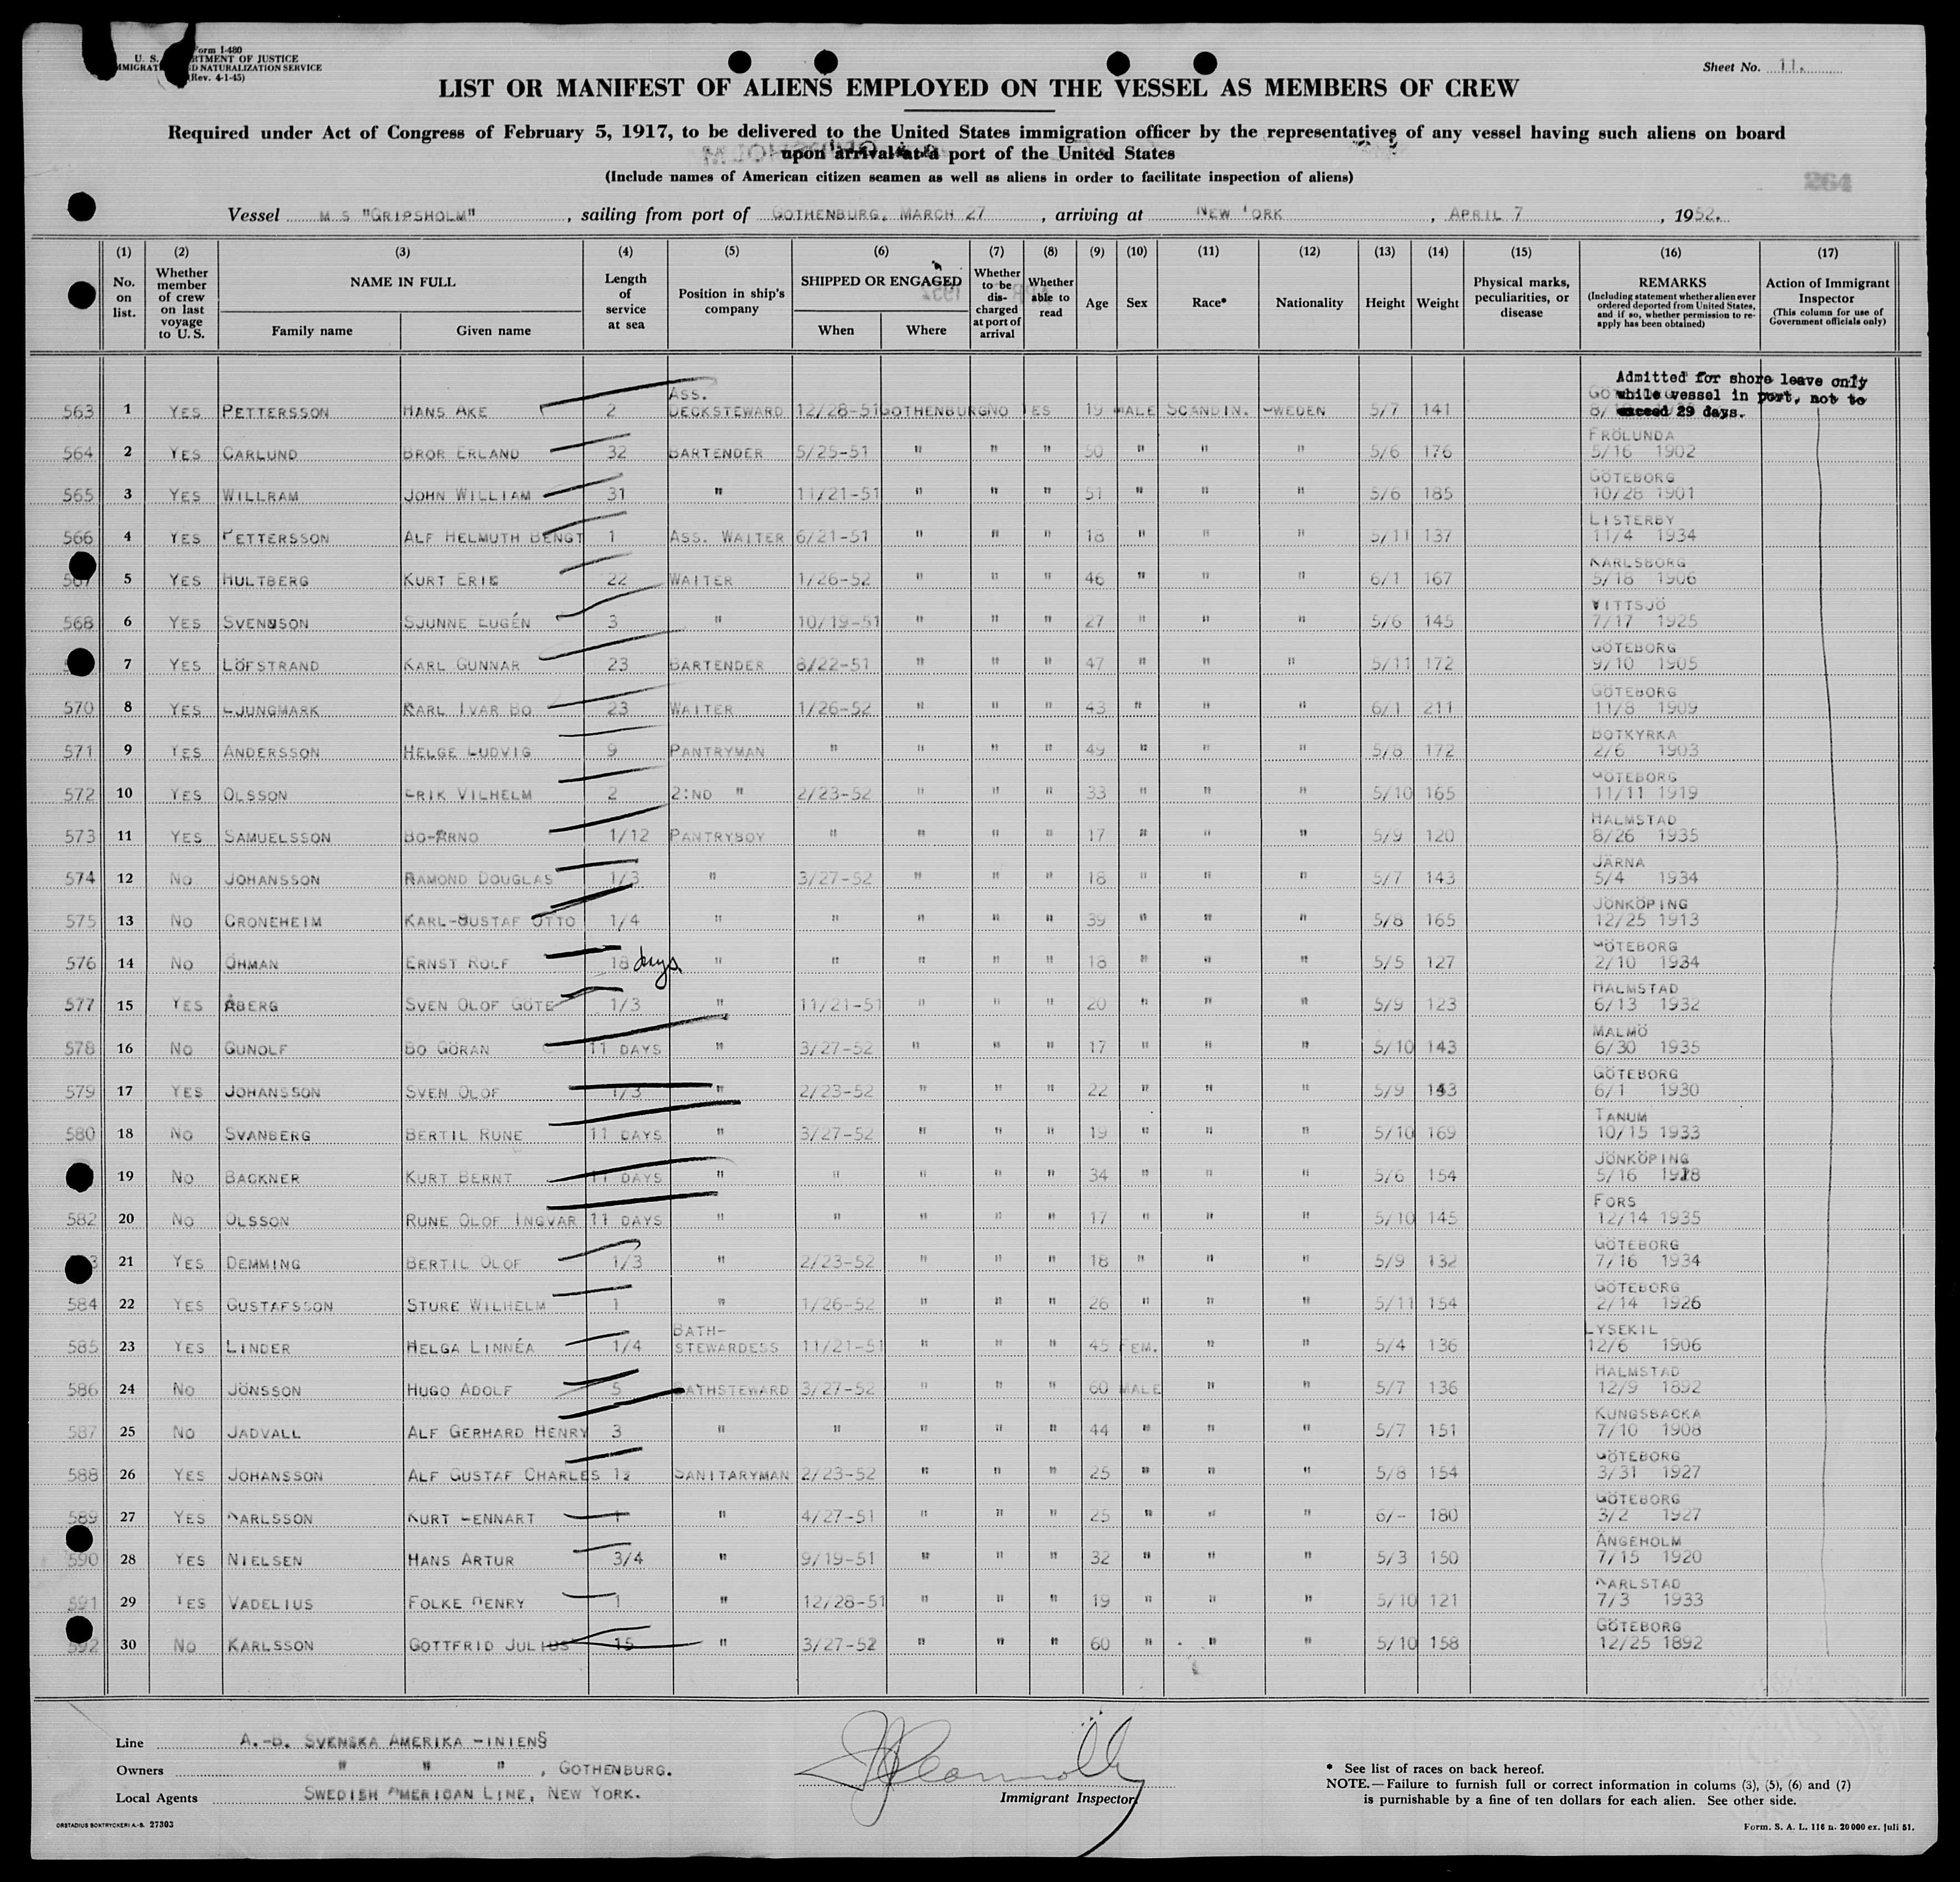 Form I-480
U. S. DEPARTMENT OF JUSTICE
IMMIGRATION AND NATURALIZATION SERVICE
(Rev. 4-1-45)
Sheet No. 11.
LIST OR MANIFEST OF ALIENS EMPLOYED ON THE VESSEL AS MEMBERS OF CREW
Required under Act of Congress of February 5, 1917, to be delivered to the United States immigration officer by the representatives of any vessel having such aliens on board
upon arrival at a port of the United States
(Include names of American citizen seamen as well as aliens in order to facilitate inspection of aliens)
264
Vessel M S "GRIPSHOLM", sailing from port of GOTHENBURG, MARCH 27, arriving at NEW YORK, APRIL 7, 1952.
(1) (2) (3) (4) (5) (6) (7) (8) (9) (10) (11) (12) (13) (14) (15) (16) (17)
No. on list. Whether member of crew on last voyage to U. S. NAME IN FULL Family name Given name Length of service at sea Position in ship's company SHIPPED OR ENGAGED When Where Whether to be discharged at port of arrival Whether able to read Age Sex Race* Nationality Height Weight Physical marks, peculiarities, or disease REMARKS (Including statement whether alien ever ordered deported from United States, and if so, whether permission to re-apply has been obtained) Action of Immigrant Inspector (This column for use of Government officials only)
Admitted for shore leave only
while vessel in port, not to
exceed 29 days.
563 1 YES PETTERSSON HANS AKE 2 ASS. DECKSTEWARD 12/28-51 GOTHENBURG NO YES 19 MALE SCANDIN. SWEDEN 5/7 141
564 2 YES CARLUND BROR ERLAND 32 BARTENDER 5/25-51 " " " 50 " " " 5/6 176 FRÖLUNDA 5/16 1902
565 3 YES WILLRAM JOHN WILLIAM 31 " 11/21-51 " " " 51 " " " 5/6 185 GÖTEBORG 10/28 1901
566 4 YES PETTERSSON ALF HELMUTH BENGT 1 ASS. WAITER 6/21-51 " " " 18 " " " 5/11 137 LISTERBY 11/4 1934
567 5 YES HULTBERG KURT ERIC 22 WAITER 1/26-52 " " " 46 " " " 6/1 167 KARLSBORG 5/18 1906
568 6 YES SVENSSON SJUNNE EUGÉN 3 " 10/19-51 " " " 27 " " " 5/6 145 VITTSJÖ 7/17 1925
7 YES LÖFSTRAND KARL GUNNAR 23 BARTENDER 6/22-51 " " " 47 " " " 5/11 172 GÖTEBORG 9/10 1905
570 8 YES LJUNGMARK KARL IVAR BO 23 WAITER 1/26-52 " " " 43 " " " 6/1 211 GÖTEBORG 11/8 1909
571 9 YES ANDERSSON HELGE LUDVIG 9 PANTRYMAN " " " " 49 " " " 5/8 172 BOTKYRKA 2/6 1903
572 10 YES OLSSON ERIK VILHELM 2 2:ND " 2/23-52 " " " 33 " " " 5/10 165 GÖTEBORG 11/11 1919
573 11 YES SAMUELSSON BO-ARNO 1/12 PANTRYBOY " " " " 17 " " " 5/9 120 HALMSTAD 8/26 1935
574 12 NO JOHANSSON RAMOND DOUGLAS 1/3 " 3/27-52 " " " 18 " " " 5/7 143 JÄRNA 5/4 1934
575 13 NO CRONEHEIM KARL-GUSTAF OTTO 1/4 " " " " " 39 " " " 5/8 165 JÖNKÖPING 12/25 1913
576 14 NO ÖHMAN ERNST ROLF 18 days " " " " " 18 " " " 5/5 127 GÖTEBORG 2/10 1934
577 15 YES ÅBERG SVEN OLOF GÖTE 1/3 " 11/21-51 " " " 20 " " " 5/9 123 HALMSTAD 6/13 1932
578 16 NO GUNOLF BO GÖRAN 11 DAYS " 3/27-52 " " " 17 " " " 5/10 143 MALMÖ 6/30 1935
579 17 YES JOHANSSON SVEN OLOF 1/3 " 2/23-52 " " " 22 " " " 5/9 143 GÖTEBORG 6/1 1930
580 18 NO SVANBERG BERTIL RUNE 11 DAYS " 3/27-52 " " " 19 " " " 5/10 169 TANUM 10/15 1933
19 NO BACKNER KURT BERNT 11 DAYS " " " " " 34 " " " 5/6 154 JÖNKÖPING 5/16 1918
582 20 NO OLSSON RUNE OLOF INGVAR 11 DAYS " " " " " 17 " " " 5/10 145 FORS 12/14 1935
3 21 YES DEMMING BERTIL OLOF 1/3 " 2/23-52 " " " 18 " " " 5/9 132 GÖTEBORG 7/16 1934
584 22 YES GUSTAFSSON STURE WILHELM 1 " 1/26-52 " " " 26 " " " 5/11 154 GÖTEBORG 2/14 1926
585 23 YES LINDER HELGA LINNÉA 1/4 BATH-STEWARDESS 11/21-51 " " " 45 FEM. " " 5/4 136 LYSEKIL 12/6 1906
586 24 NO JÖNSSON HUGO ADOLF 5 BATHSTEWARD 3/27-52 " " " 60 MALE " " 5/7 136 HALMSTAD 12/9 1892
587 25 NO JADVALL ALF GERHARD HENRY 3 " " " " " 44 " " " 5/7 151 KUNGSBACKA 7/10 1908
588 26 YES JOHANSSON ALF GUSTAF CHARLES 1½ SANITARYMAN 2/23-52 " " " 25 " " " 5/8 154 GÖTEBORG 3/31 1927
589 27 YES KARLSSON KURT LENNART 1 " 4/27-51 " " " 25 " " " 6/- 180 GÖTEBORG 3/2 1927
590 28 YES NIELSEN HANS ARTUR 3/4 " 9/19-51 " " " 32 " " " 5/3 150 ÄNGEHOLM 7/15 1920
591 29 YES VADELIUS FOLKE HENRY 1 " 12/28-51 " " " 19 " " " 5/10 121 KARLSTAD 7/3 1933
592 30 NO KARLSSON GOTTFRID JULIUS 15 " 3/27-52 " " " 60 " " " 5/10 158 GÖTEBORG 12/25 1892
Line A.-B. SVENSKA AMERIKA LINIENS
Owners " " ", GOTHENBURG.
Local Agents SWEDISH AMERICAN LINE, NEW YORK.
Immigrant Inspector.
* See list of races on back hereof.
NOTE.—Failure to furnish full or correct information in colums (3), (5), (6) and (7)
is purnishable by a fine of ten dollars for each alien. See other side.
ORSTADIUS BOKTRYCKERI A.-B. 27303
Form. S. A. L. 116 n. 20 000 ex. juli 51.